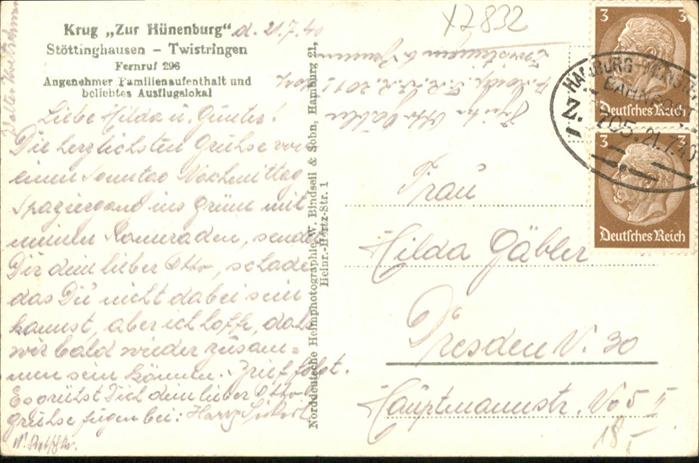 Krug „Zur Hünenburg"
Stöttinghausen – Twistringen
Fernruf 296
Angenehmer Familienaufenthalt und
beliebtes Ausflugslokal
d. 21.7.40
Liebe Hilda u. Günter!
Die herzlichsten Grühse von
einen Sonntag Nachmittag
Spaziergang ins Grüne mit
meinen Kameraden, sendet
Dir dein lieber Otto, schade
das Du nicht dabei sein
kannst, aber ich hoffe, dahs
wir bald wieder zusam=
men sein können. Brief folgt.
Es grühst Dich dein lieber Otto
grühse fügen bei: Harry
Norddeutsche Heimphotographie W. Bindseil & Sohn, Hamburg 21,
Heinr.-Hertz-Str. 1
X7832
3
Deutsches Reich
3
Deutsches Reich
HAMBURG
21.7.40
Frau
Hilda Gäbler
Dresden N. 30
Hauptmannstr. No 5 II
18,-